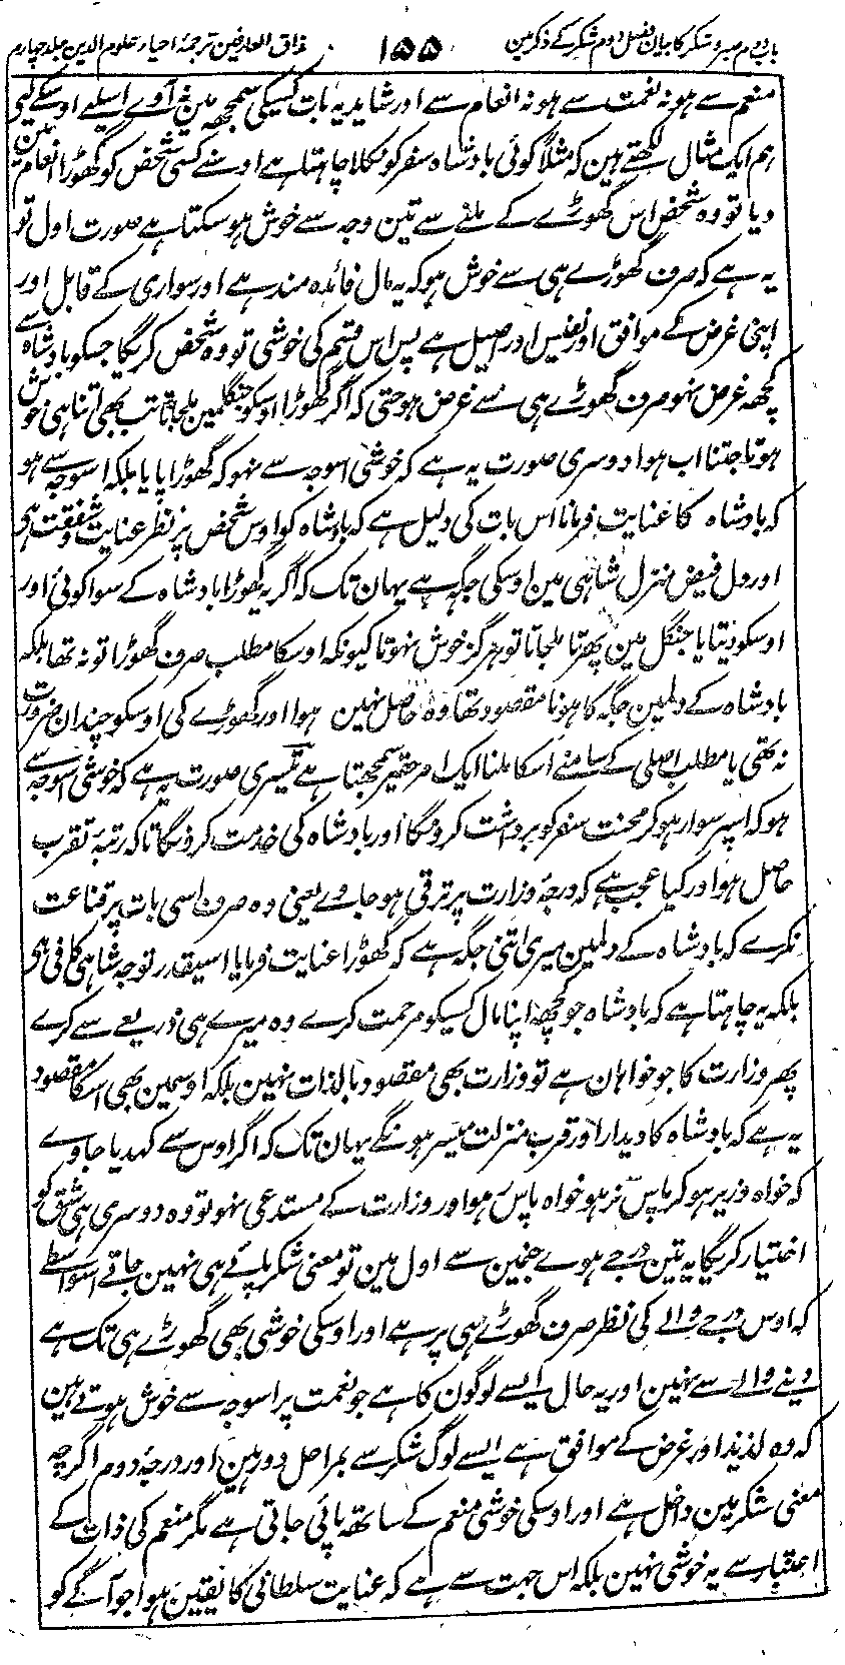 باب دوم صبر و شکر کا بیان فصل دوم شکر کے ذکر مین ۱۵۵ مذاق العارفین ترجمۂ احیاء علوم الدین جلد چہارم
منعم سے ہو نہ نعمت سے ہو نہ انعام سے اور شاید یہ بات کسیکی سمجھ مین نہ آوے اسلیے اوسکے لیے
ہم ایک مثال لکھتے ہین کہ مثلاً کوئی بادشاہ سفر کو نکلا چاہتا ہے اوسنے کسی شخص کو گھوڑا انعام مین
دیا تو وہ شخص اس گھوڑے کے ملنے سے تین وجہ سے خوش ہو سکتا ہے صورت اول تو
یہ ہے کہ صرف گھوڑے ہی سے خوش ہو کہ یہ مال فائدہ مند ہے اور سواری کے قابل اور
اپنی غرض کے موافق اور نفیس اور اصیل ہے پس اس قسم کی خوشی تو وہ شخص کریگا جسکو بادشاہ سے
کچھ غرض نہو صرف گھوڑے ہی سے غرض ہو حتی کہ اگر گھوڑا اوسکو جنگلمین ملجاتا تب بھی اتنا ہی خوش
ہوتا جتنا اب ہوا دوسری صورت یہ ہے کہ خوشی اسوجہ سے نہو کہ گھوڑا پایا بلکہ اسوجہ سے ہو
کہ بادشاہ کا عنایت فرمانا اس بات کی دلیل ہے کہ بادشاہ کو اوس شخص پر نظر عنایت و شفقت ہی
اور دل فیض منزل شاہی مین اوسکی جگہ ہے یہان تک کہ اگر یہ گھوڑا بادشاہ کے سوا کوئی اور
اوسکو دیتا یا جنگل مین پھرتا ملجاتا تو ہرگز خوش نہوتا کیونکہ اوسکا مطلب صرف گھوڑا تو نہ تھا بلکہ
بادشاہ کے دلمین جگہ کا ہونا مقصود تھا وہ حاصل نہین ہوا اور گھوڑے کی اوسکو چندان ضرورت
نہ تھی یا مطلب اصلی کے سامنے اسکا ملنا ایک امر حقیر سمجھتا ہے تیسری صورت یہ ہے کہ خوشی اسوجہ سے
ہو کہ اسپر سوار ہو کر محنت سفر کو برداشت کرونگا اور بادشاہ کی خدمت کرونگا تاکہ رتبۂ تقرب
حاصل ہو اور کیا عجب ہے کہ درجۂ وزارت پر ترقی ہو جاوے یعنی وہ صرف اسی بات پر قناعت
نکرے کہ بادشاہ کے دلمین میری اتنی جگہ ہے کہ گھوڑا عنایت فرمایا اسیقدر توجہ شاہی کافی ہی
بلکہ یہ چاہتا ہے کہ بادشاہ جو کچھ اپنا مال کسیکو مرحمت کرے وہ میرے ہی ذریعے سے کرے
پھر وزارت کا جو خواہان ہے تو وزارت بھی مقصود بالذات نہین بلکہ اوسمین بھی اسکا مقصود
یہ ہے کہ بادشاہ کا دیدار اور قرب منزلت میسر ہونگے یہان تک کہ اگر اوس سے کہدیا جاوے
کہ خواہ وزیر ہو کر پاس نہ ہو خواہ پاس ہو اور وزارت کے مستدعی نہو تو وہ دوسری ہی شق کو
اختیار کریگا یہ تین درجے ہوے جنمین سے اول مین تو معنی شکر پائے ہی نہین جاتے اسواسطے
کہ اوس درجے والے کی نظر صرف گھوڑے ہی پر ہے اور اوسکی خوشی بھی گھوڑے ہی تک ہے
دینے والے سے نہین اور یہ حال ایسے لوگون کا ہے جو نعمت پر اسوجہ سے خوش ہوتے ہین
کہ وہ لذیذ اور غرض کے موافق ہے ایسے لوگ شکر سے بمراحل دور ہین اور درجۂ دوم اگرچہ
معنی شکر مین داخل ہے اور اوسکی خوشی منعم کے ساتھ پائی جاتی ہے مگر منعم کی ذات کے
اعتبار سے یہ خوشی نہین بلکہ اس جہت سے ہے کہ عنایت سلطانی کا یقین ہوا جو آگے کو